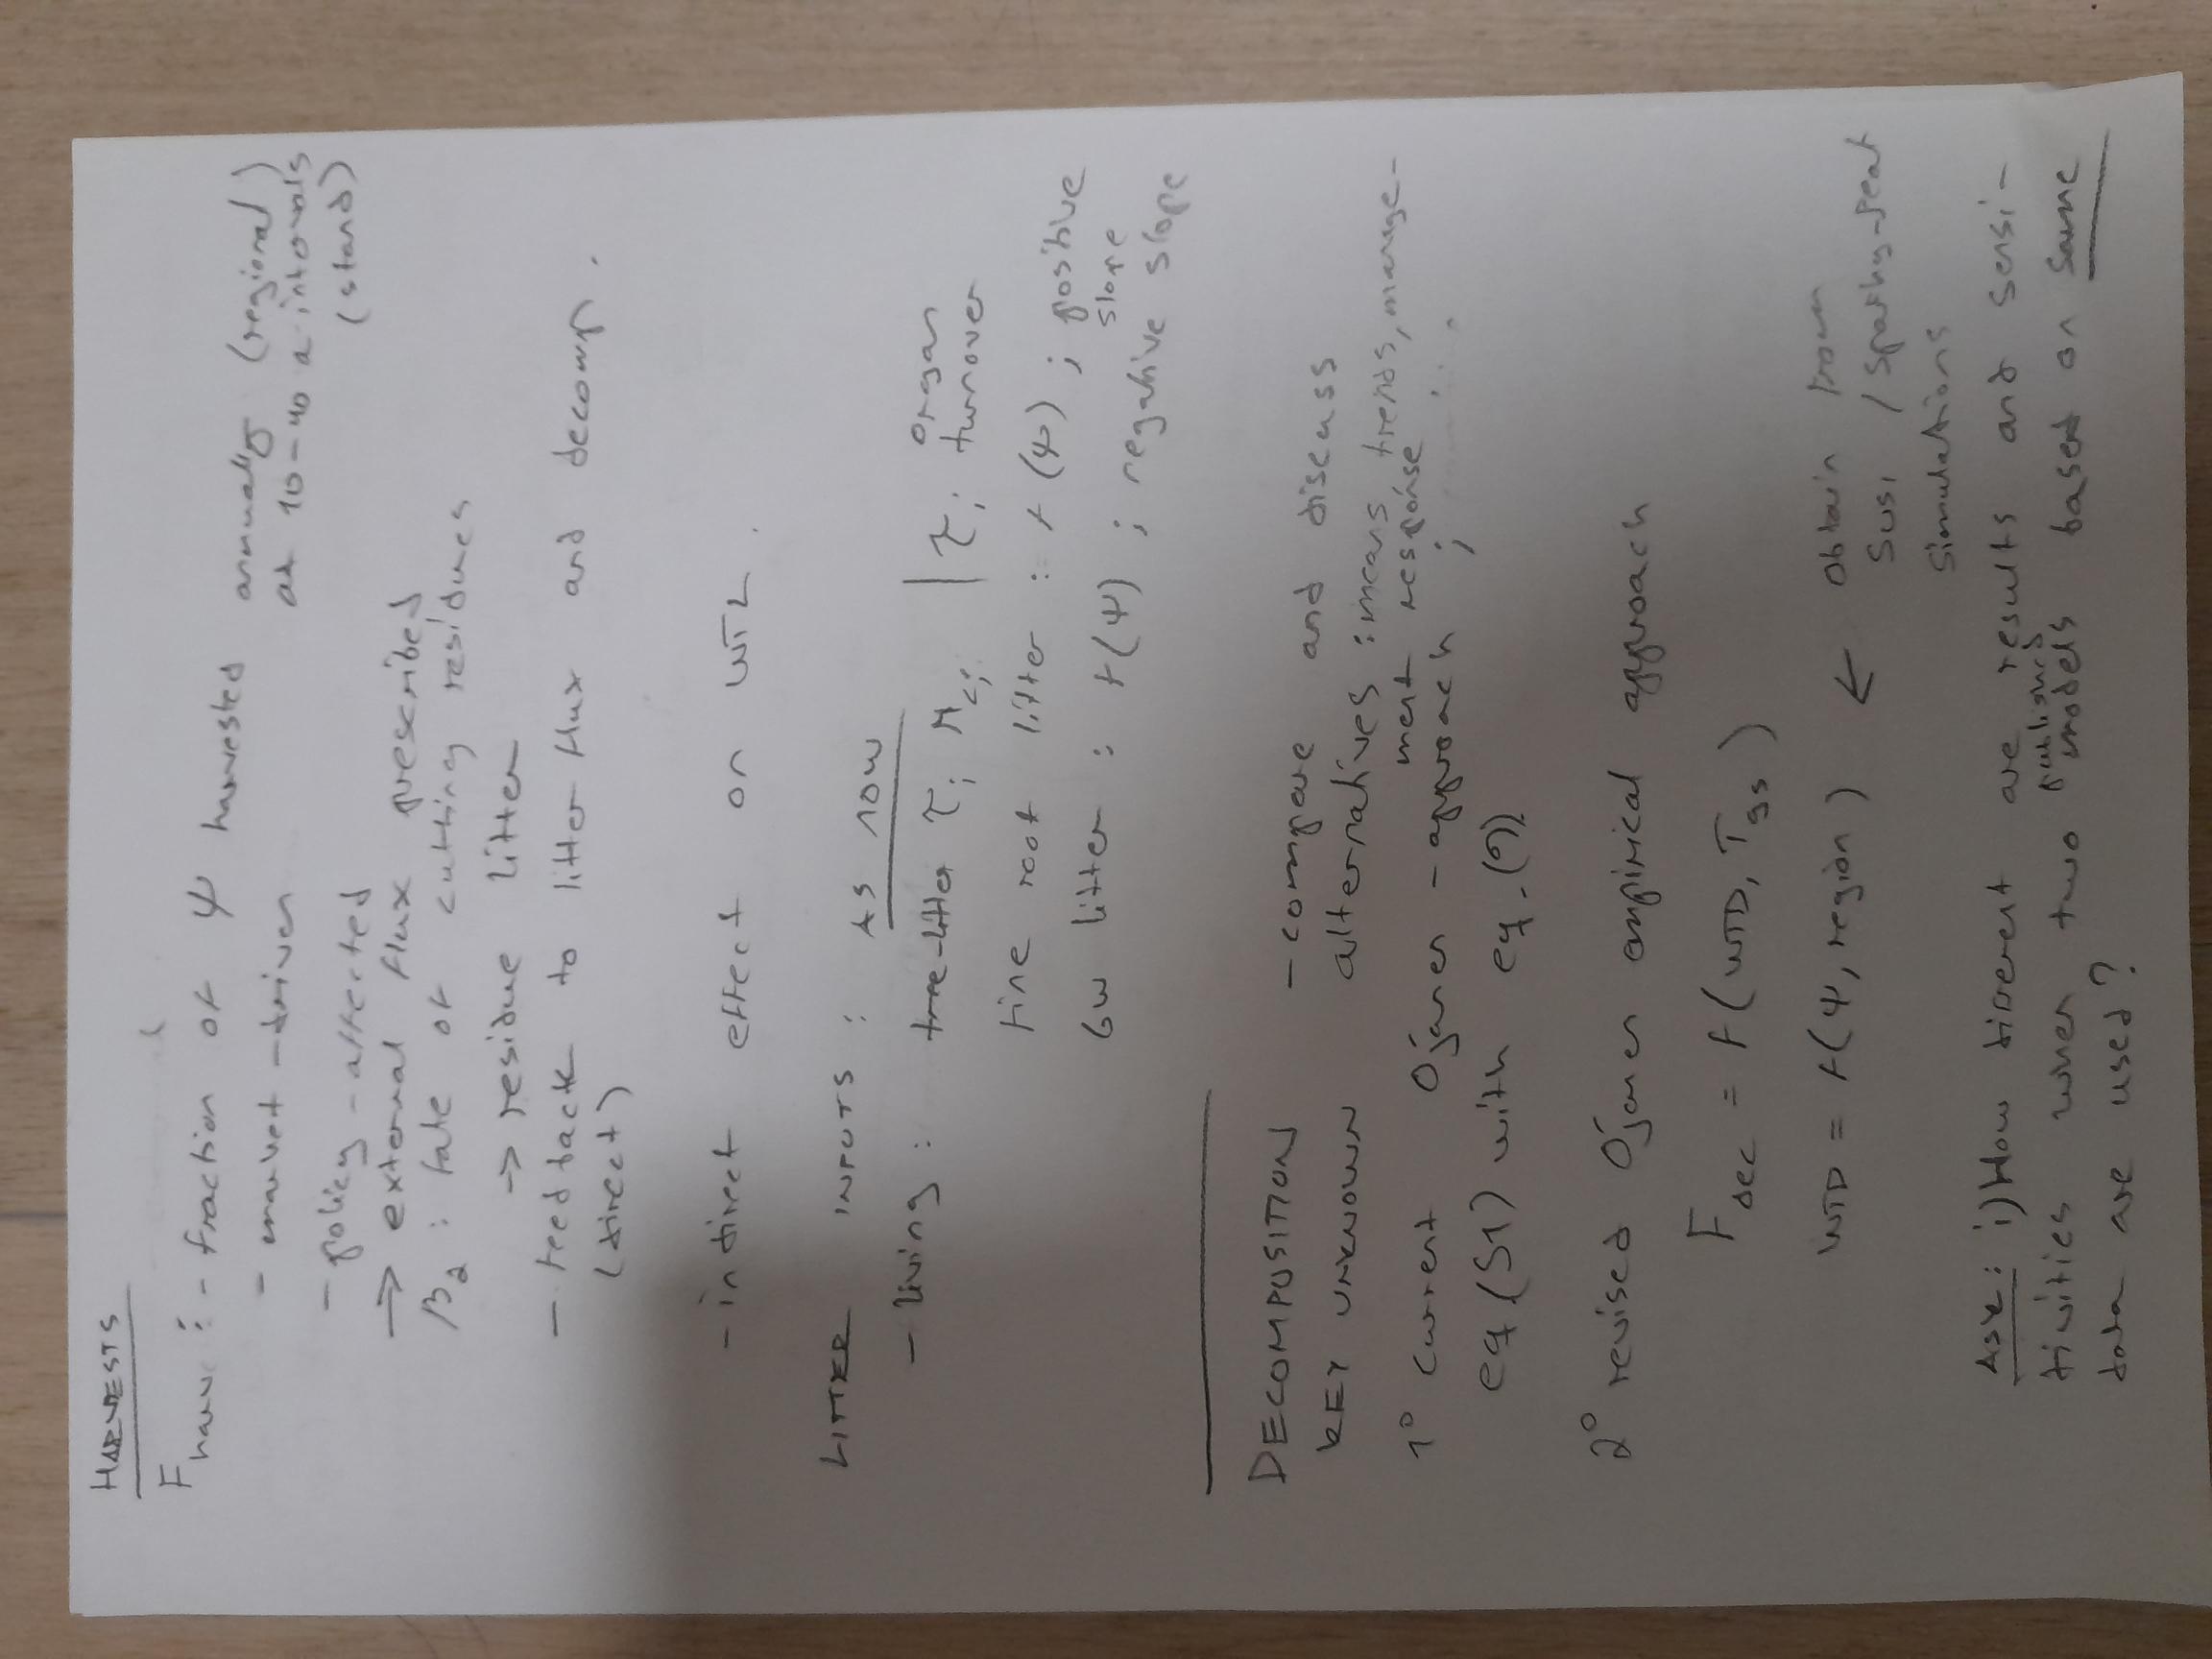 HARVESTS
F harv : - fraction of Ψ harvested annually (regional)
- market-driven at 10-40 a intervals
- policy-affected (stand)
→ external flux prescribed
β₂ : fate of cutting residues
→ residue litter
- feedback to litter flux and decomp.
(direct)
- indirect effect on WTL.
LITTER INPUTS : AS NOW
- living : tree-litter τi Mci | τi organ
turnover
fine root litter : f(Ψ) ; positive
slope
GW litter : f(Ψ) ; negative slope
DECOMPOSITION - compare and discuss
KEY UNKNOWN alternatives : means, trends, manage-
ment response
1° current Ojanen-approach ;
eq.(S1) with eq.(9).
2° revised Ojanen empirical approach
F dec = f(WTD, Tgs)
WTD = f(Ψ, region) ← obtain from
Susi / Spathy-peat
simulations
Ask: i) How different are results and sensi-
published
tivities when two models based on same
data are used?